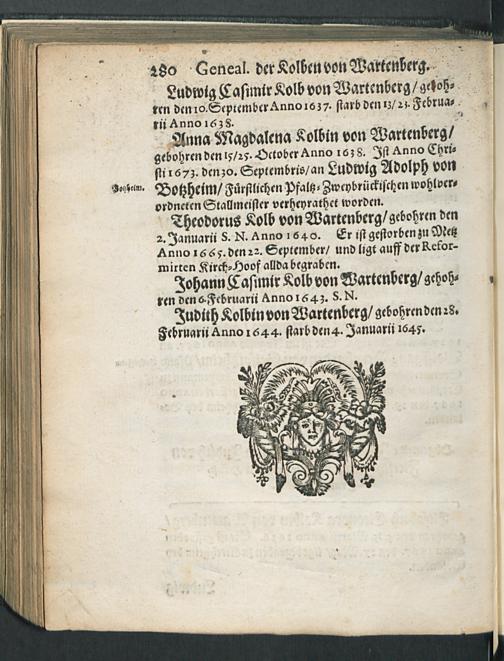 280 Geneal. der Kolben von Wartenberg.
Ludwig Casimir Kolb von Wartenberg/ geboh-
ren den 10. September Anno 1637. starb den 13/23. Februa-
rii Anno 1638.
Anna Magdalena Kolbin von Wartenberg/
gebohren den 15/25. October Anno 1638. Ist Anno Chri-
sti 1673. den 30. Septembris/ an Ludwig Adolph von
Botzheim.
Botzheim/ Fürstlichen Pfaltz-Zweybrückischen wohlver-
ordneten Stallmeister verheyrathet worden.
Theodorus Kolb von Wartenberg/ gebohren den
2. Januarii S. N. Anno 1640. Er ist gestorben zu Metz
Anno 1665. den 22. September/ und ligt auff der Refor-
mirten Kirch-Hoof allda begraben.
Johann Casimir Kolb von Wartenberg/ geboh-
ren den 6. Februarii Anno 1643. S. N.
Judith Kolbin von Wartenberg/ gebohren den 28.
Februarii Anno 1644. starb den 4. Januarii 1645.